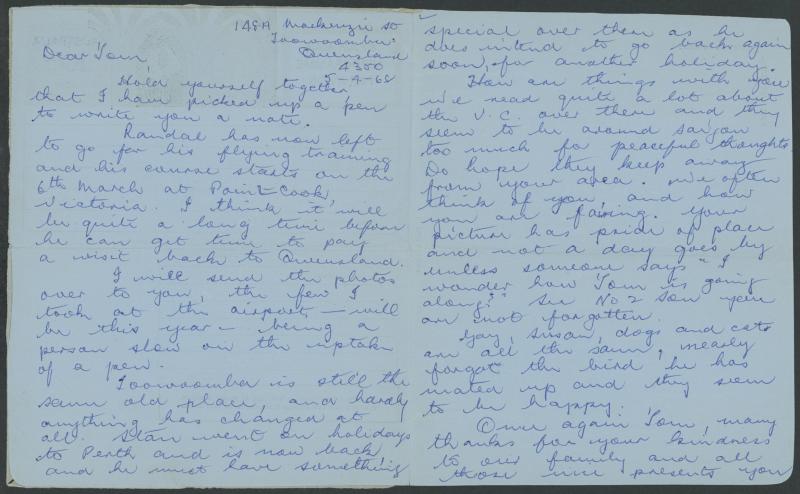 148A Mackenzie St
Toowoomba
Queensland
4350
5-4-68
Dear Tom,
Hold yourself together
that I have picked up a pen
to write you a note.
Randal has now left
to go for his flying training
and his course starts on the
6th March at Point Cook
Victoria. I think it will
be quite a long time before
he can get time to pay
a visit back to Queensland.
I will send the photos
over to you, the few I
took at the airport – will
be this year – being a
person slow on the uptake
of a pen.
Toowoomba is still the
same old place, and hardly
anything has changed at
all. Stan went on holidays
to Perth and is now back,
and he must have something
special over there as he
does intend to go back again
soon, for another holiday.
How are things with you
we read quite a lot about
the V.C. over there and they
seem to be around Saigon
too much for peaceful thoughts.
Do hope they keep away
from your area. We often
think of you, and how
you are faring. Your
picture has pride of place
and not a day goes by
unless someone says "I
wonder how Tom is going
along?" See No 2 Son you
are not forgotten.
Gay, Susan, dogs and cats
are all the same, nearly
forgot the bird, he has
mated up and they seem
to be happy.
Once again Tom, many
thanks for your kindness
to our family and all
those nice presents you